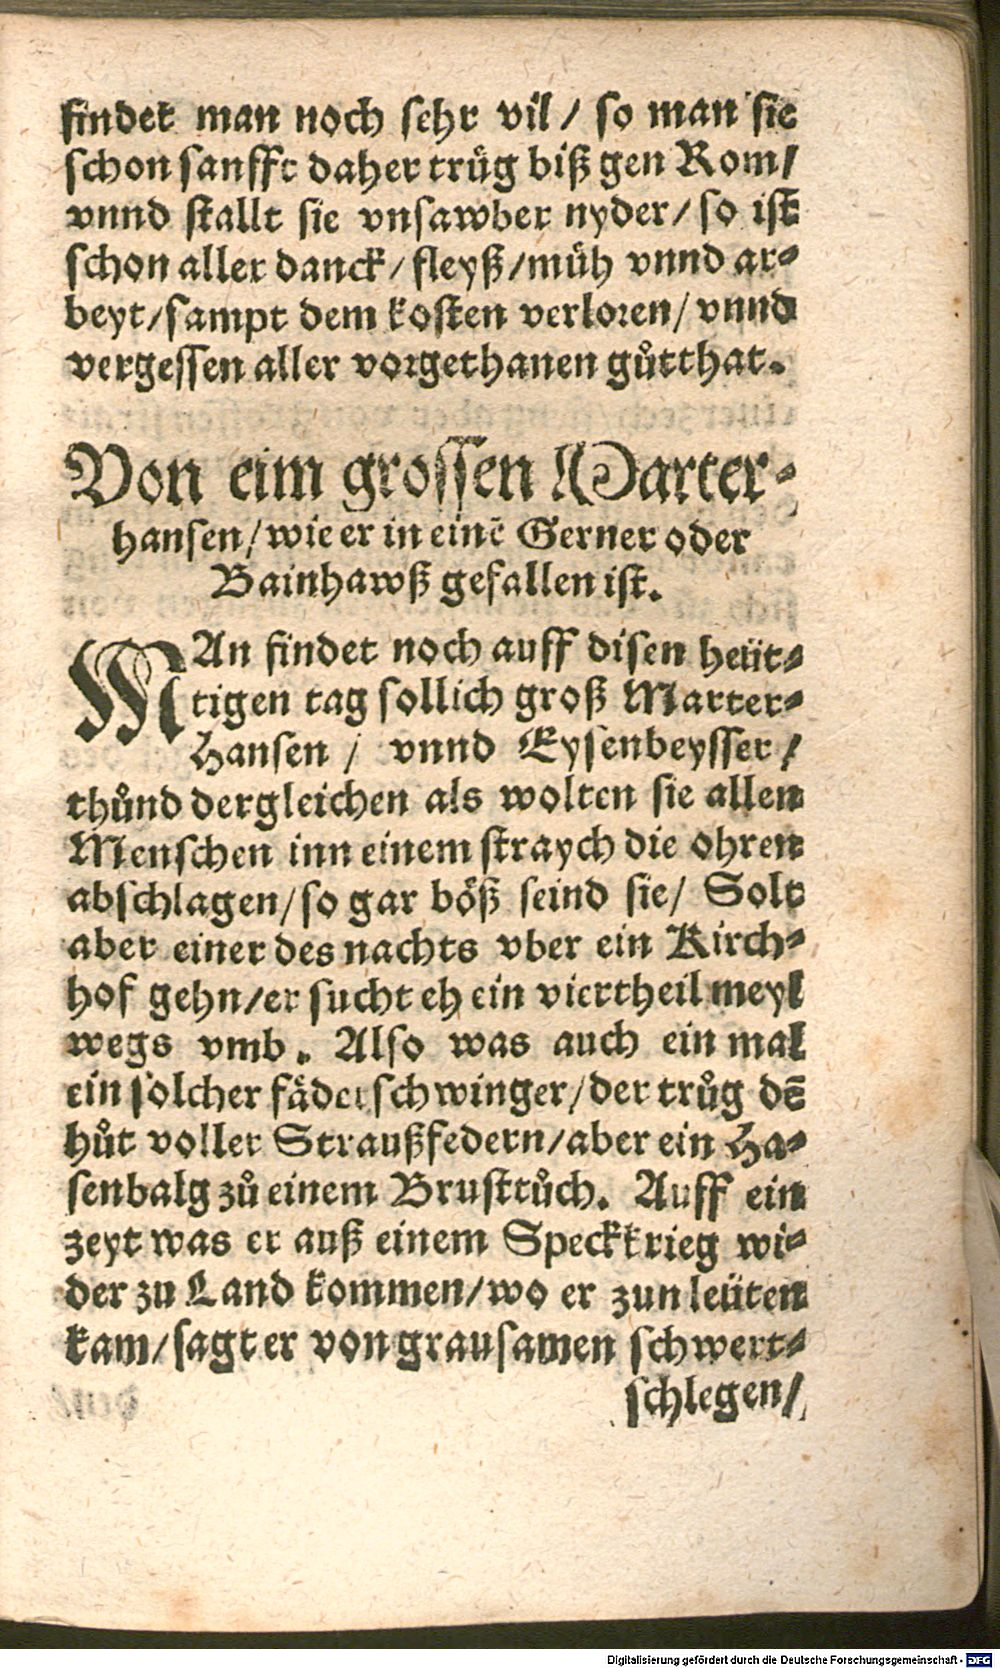 findet man noch sehr vil / so man sie
schon sanfft daher trüg biß gen Rom /
vnnd stallt sie vnsawber nyder / so ist
schon aller danck / fleyß / müh vnnd ar-
beyt / sampt dem kosten verloren / vnnd
vergessen aller vorgethanen gůtthat.
Von eim grossen Marter-
hansen / wie er in einē Gerner oder
Bainhawß gefallen ist.
MAn findet noch auff disen heüt-
tigen tag sollich groß Marter-
Hansen / vnnd Eysenbeysser /
thůnd dergleichen als wolten sie allen
Menschen inn einem straych die ohren
abschlagen / so gar böß seind sie / Solt
aber einer des nachts vber ein Kirch-
hof gehn / er sucht eh ein viertheil meyl
wegs vmb. Also was auch ein mal
ein solcher fäderschwinger / der trůg dē
hůt voller Straußfedern / aber ein Ha-
senbalg zů einem Brusttůch. Auff ein
zeyt was er auß einem Speckkrieg wi-
der zu Land kommen / wo er zun leüten
kam / sagt er von grausamen schwert-
schlegen /
Digitalisierung gefördert durch die Deutsche Forschungsgemeinschaft - DFG